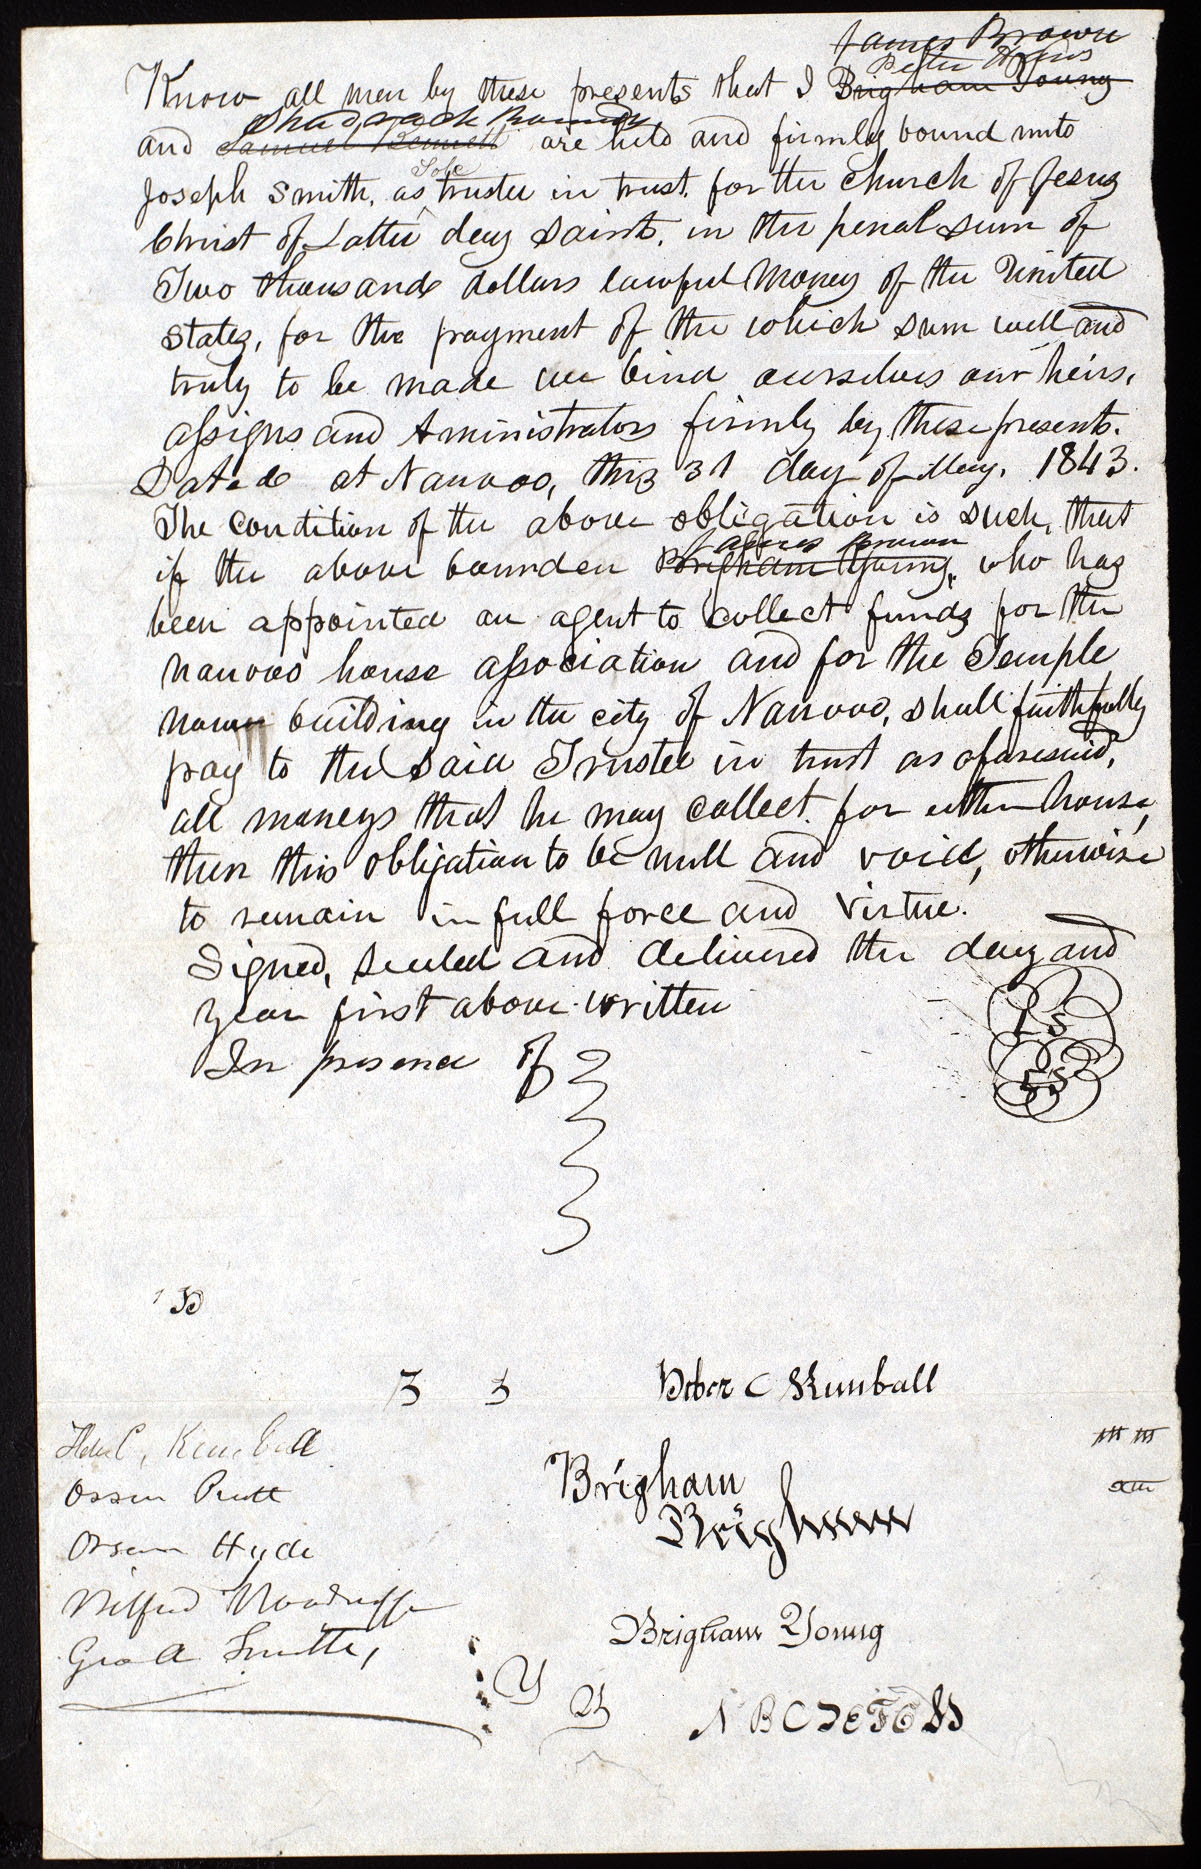 James Brown
Peter Haws
Know all men by these presents that I Brigham Young
Shadrack Roundy
and Samuel Bennett are held and firmly bound unto
Sole
Joseph Smith, as trustee in trust. for the Church of Jesus
Christ of Latter day Saint. in the penal sum of
Two thousand dollars lawful money of the United
States, for the payment of the which sum well and
truly to be made we bind ourselves our heirs,
assigns and Aministrators firmly by these presents.
Dated at Nauvoo, this 31 day of May. 1843.
The condition of the above obligation is such, that
James Brown
if the above bounden Brigham Young, who has
been appointed an agent to collect funds for the
nauvoo house association and for the Temple
now building in the city of Nauvoo, shall faithfully
pay to the said Trustee in trust as aforesaid,
all moneys that he may collect. for either house,
then this obligation to be null and void, otherwise
to remain in full force and virtue.
Signed, sealed and delivered the day and
year first above written
L S
In presence of
Heber C Kimball
Heber C, Kimball
Orson Pratt
Brigham
Brigham
Orson Hyde
Wilford Woodruff
Brigham Young
Geo A Smith,
Y
Y
A B C D E F G H